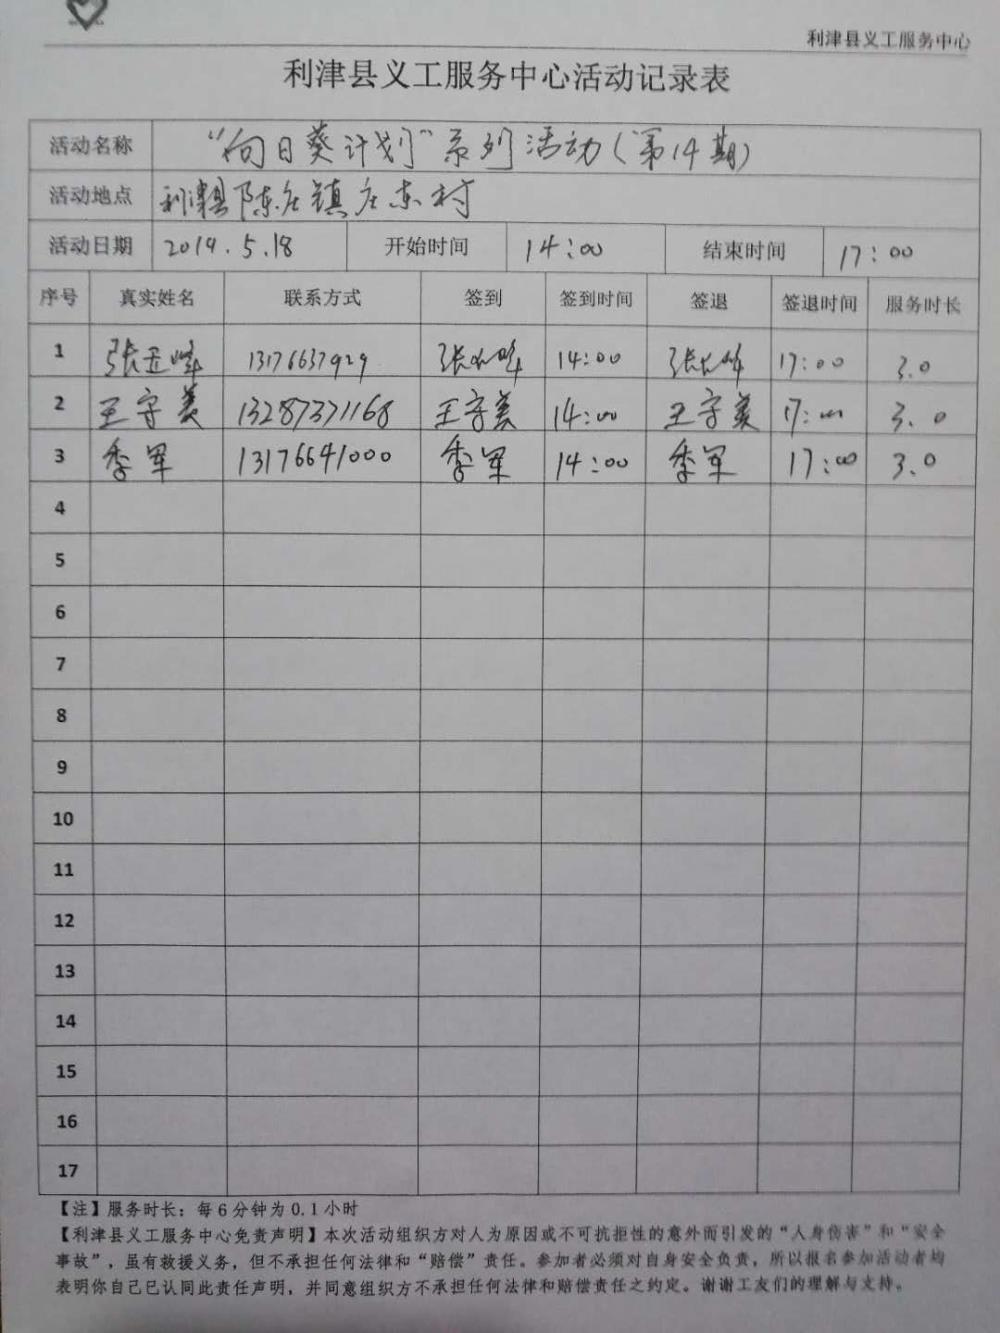 利津县义工服务中心
利津县义工服务中心活动记录表
活动名称 “向日葵计划”系列活动(第14期)
活动地点 利津县陈庄镇庄东村
活动日期 2019.5.18 开始时间 14:00 结束时间 17:00
序号 真实姓名 联系方式 签到 签到时间 签退 签退时间 服务时长
1 张玉峰 13176637929 张玉峰 14:00 张玉峰 17:00 3.0
2 王守美 13287371168 王守美 14:00 王守美 17:00 3.0
3 季军 13176641000 季军 14:00 季军 17:00 3.0
4
5
6
7
8
9
10
11
12
13
14
15
16
17
【注】服务时长：每6分钟为0.1小时
【利津县义工服务中心免责声明】本次活动组织方对人为原因或不可抗拒性的意外而引发的“人身伤害”和“安全
事故”，虽有救援义务，但不承担任何法律和“赔偿”责任。参加者必须对自身安全负责，所以报名参加活动者均
表明你自己已认同此责任声明，并同意组织方不承担任何法律和赔偿责任之约定。谢谢工友们的理解与支持。